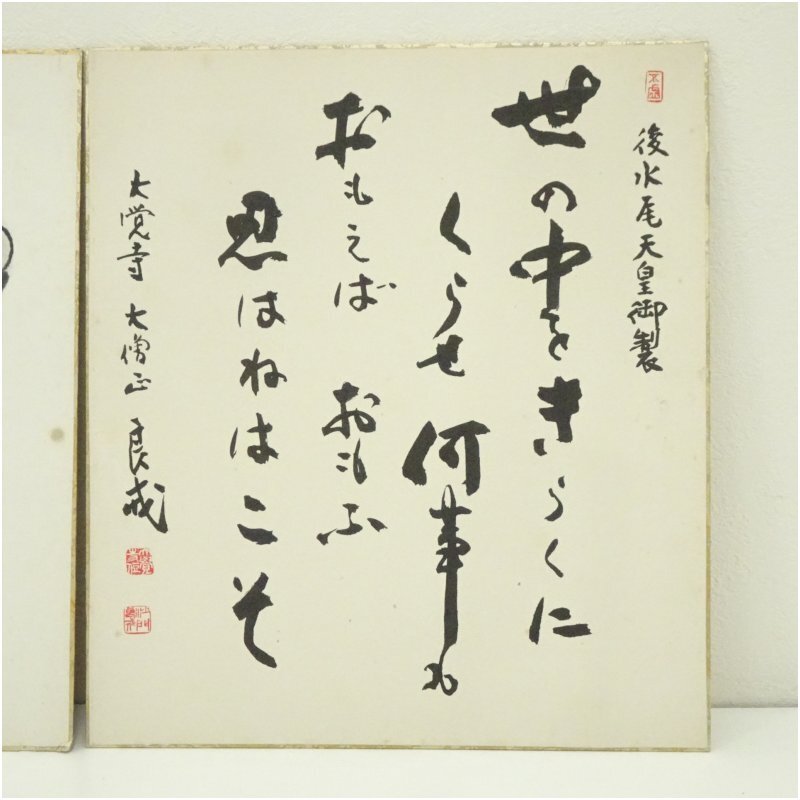 後水尾天皇御製
世の中をきらくに
くらせ何事も
おもえば おもふ
忍はねはこそ
大覚寺 大僧正 良戒